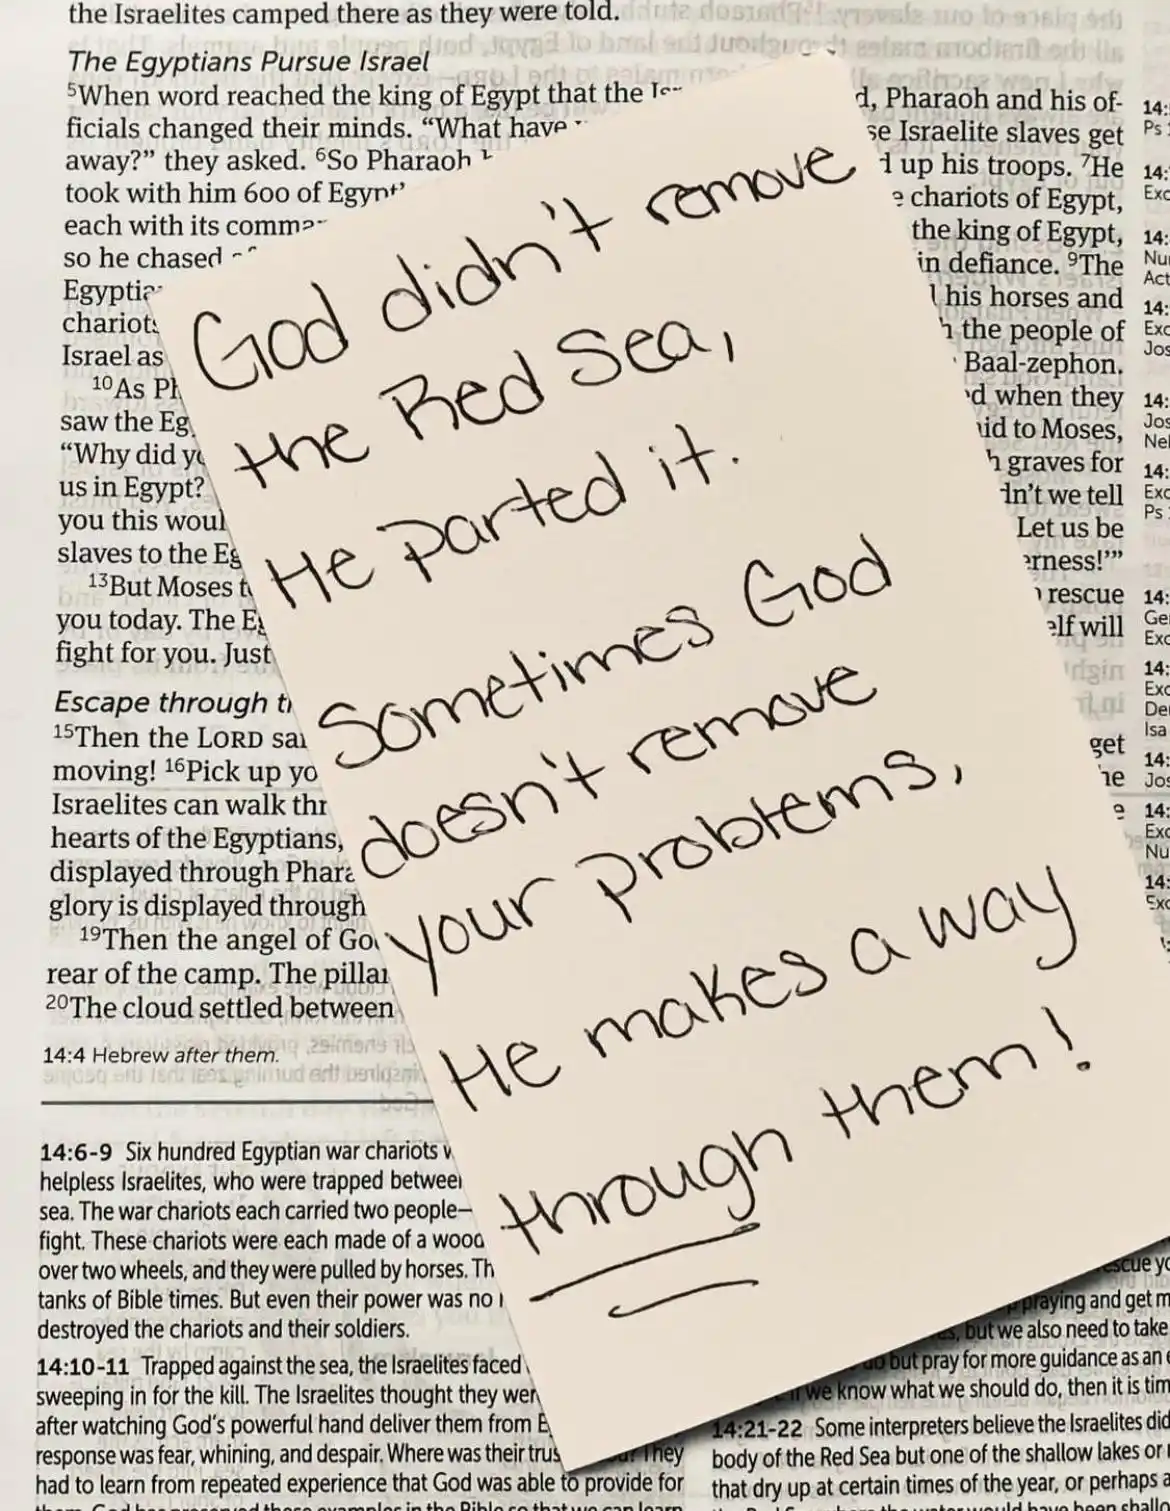 the Israelites camped there as they were told.
The Egyptians Pursue Israel
5When word reached the king of Egypt that the
d, Pharaoh and his of-
ficials changed their minds. “What have
se Israelite slaves get
away?” they asked. 6So Pharaoh
d up his troops. 7He
took with him 600 of Egypt’
e chariots of Egypt,
each with its comma
the king of Egypt,
so he chased
in defiance. 9The
Egyptia
his horses and
chariots
h the people of
Israel as
Baal-zephon.
10As Ph
ed when they
saw the Eg
aid to Moses,
“Why did yo
h graves for
us in Egypt?
dn’t we tell
you this woul
Let us be
slaves to the Eg
erness!’”
13But Moses t
rescue
you today. The Eg
elf will
fight for you. Just
Escape through t
15Then the LORD sai
get
moving! 16Pick up yo
he
Israelites can walk thr
e
hearts of the Egyptians,
displayed through Phara
glory is displayed through
19Then the angel of Go
rear of the camp. The pillar
20The cloud settled between
14:4 Hebrew after them.
God didn't remove
the Red Sea,
He parted it.
Sometimes God
doesn't remove
your problems,
He makes a way
through them!
14:6-9 Six hundred Egyptian war chariots w
helpless Israelites, who were trapped between
sea. The war chariots each carried two people—
fight. These chariots were each made of a wood
over two wheels, and they were pulled by horses. Th
tanks of Bible times. But even their power was no
destroyed the chariots and their soldiers.
14:10-11 Trapped against the sea, the Israelites faced
sweeping in for the kill. The Israelites thought they wer
after watching God’s powerful hand deliver them from E
response was fear, whining, and despair. Where was their trus They
had to learn from repeated experience that God was able to provide for
rescue yo
praying and get m
but we also need to take
do but pray for more guidance as an e
we know what we should do, then it is tim
14:21-22 Some interpreters believe the Israelites did
body of the Red Sea but one of the shallow lakes or
that dry up at certain times of the year, or perhaps a